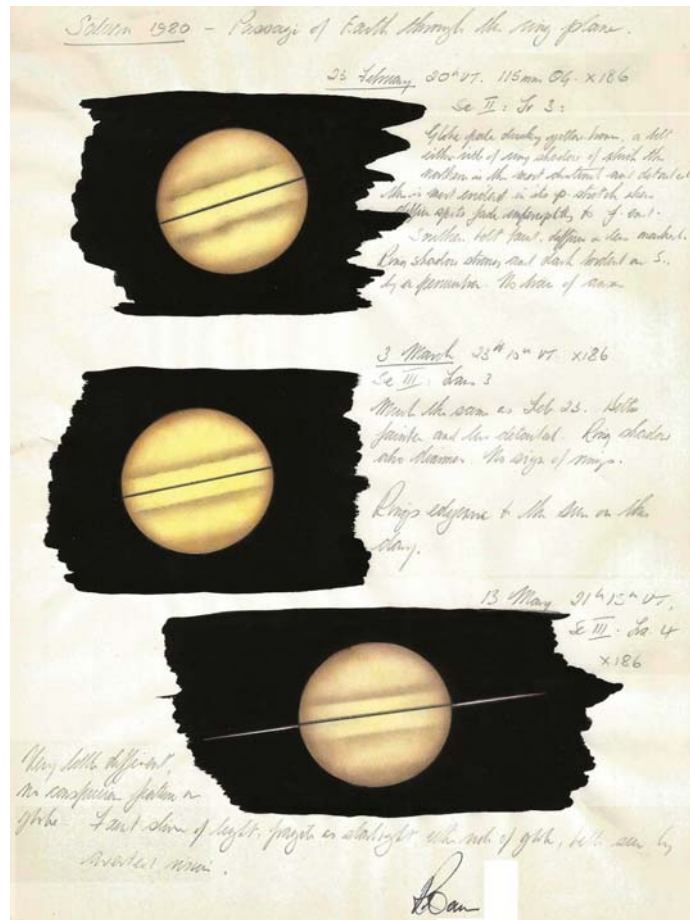 Saturn 1980 – Passage of Earth through the ring plane.
23 February 20h UT. 115mm OG. x186
Se II: Tr 3:
Globe pale dusky yellow brown, a belt
either side of ring shadow of which the
northern is the most and detailed
this is most evident in its p. stretch where
spots fade to f. end.
Southern belt faint, diffuse & less marked.
Ring shadow strong and dark
No trace of
3 March 23h 15m UT. x186
Se III. Trans 3
Much the same as Feb 23. Belts
fainter and less detailed. Ring shadow
also thinner. No sign of rings.
Rings edgewise to the sun on this
day.
13 21h 15m UT.
Se III. Tra. 4
x186
Very little different,
no conspicuous feature on
globe. Faint sliver of light, as starlight, either side of globe, seen by
averted vision.